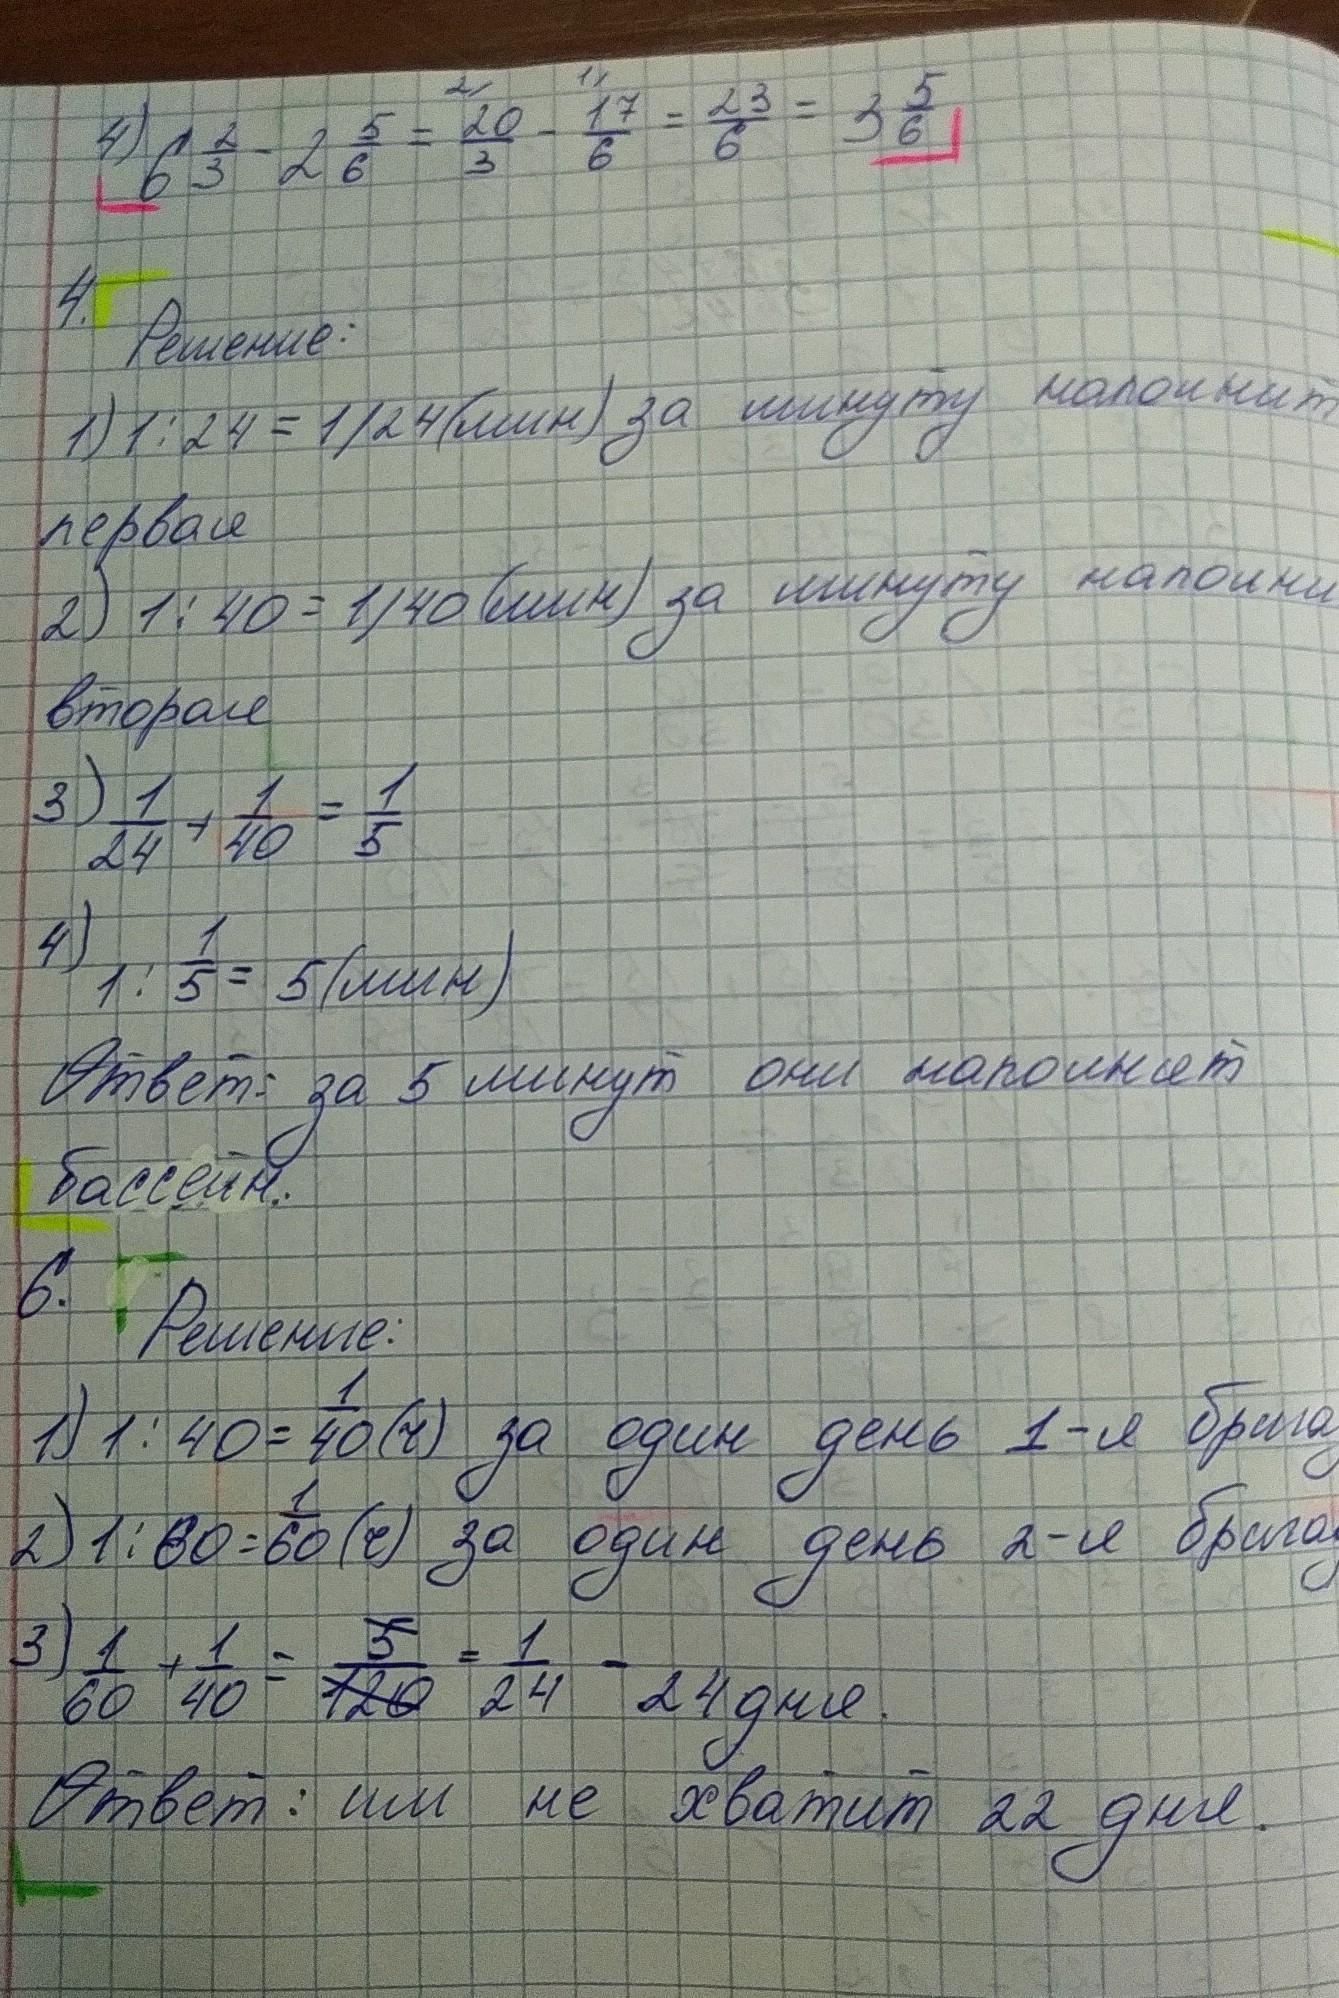 4) 6 2/3 - 2 5/6 = 20/3 - 17/6 = 23/6 = 3 5/6
4.
Решение:
1) 1:24 = 1/24 (мин) за минуту наполнит
первая
2) 1:40 = 1/40 (мин) за минуту наполни
вторая
3) 1/24 + 1/40 = 1/5
4) 1 : 1/5 = 5 (мин)
Ответ: за 5 минут они наполнят
бассейн.
6.
Решение:
1) 1:40 = 1/40 (ч) за один день 1-я брига
2) 1:60 = 1/60 (ч) за один день 2-я брига
3) 1/60 + 1/40 = 5/120 = 1/24 - 24 дня.
Ответ: им не хватит 22 дня.